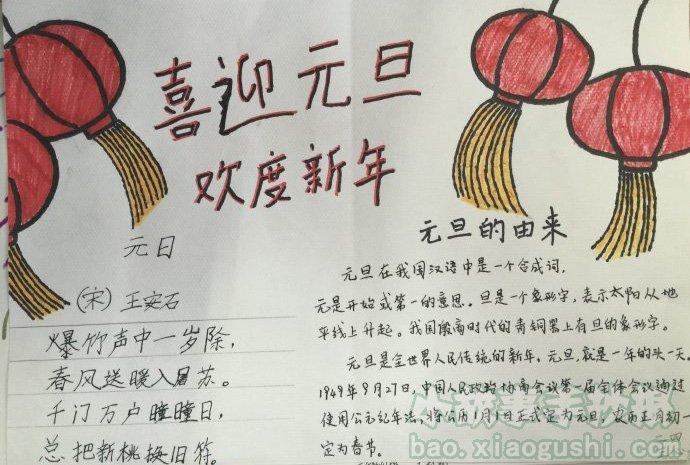 喜迎元旦
欢度新年
元日
(宋) 王安石
爆竹声中一岁除,
春风送暖入屠苏。
千门万户曈曈日,
总把新桃换旧符。
元旦的由来
元旦在我国汉语中是一个合成词,
元是开始或第一的意思。旦是一个象形字,表示太阳从地
平线上升起。我国殷商时代的青铜器上有旦的象形字。
元旦是全世界人民传统的新年。元旦,就是一年的头一天。
1949年9月27日,中国人民政治协商会议第一届全体会议通过
使用公元纪年法,将公历1月1日正式定为元旦,农历正月初一
定为春节。
bao.xiaogushi.com